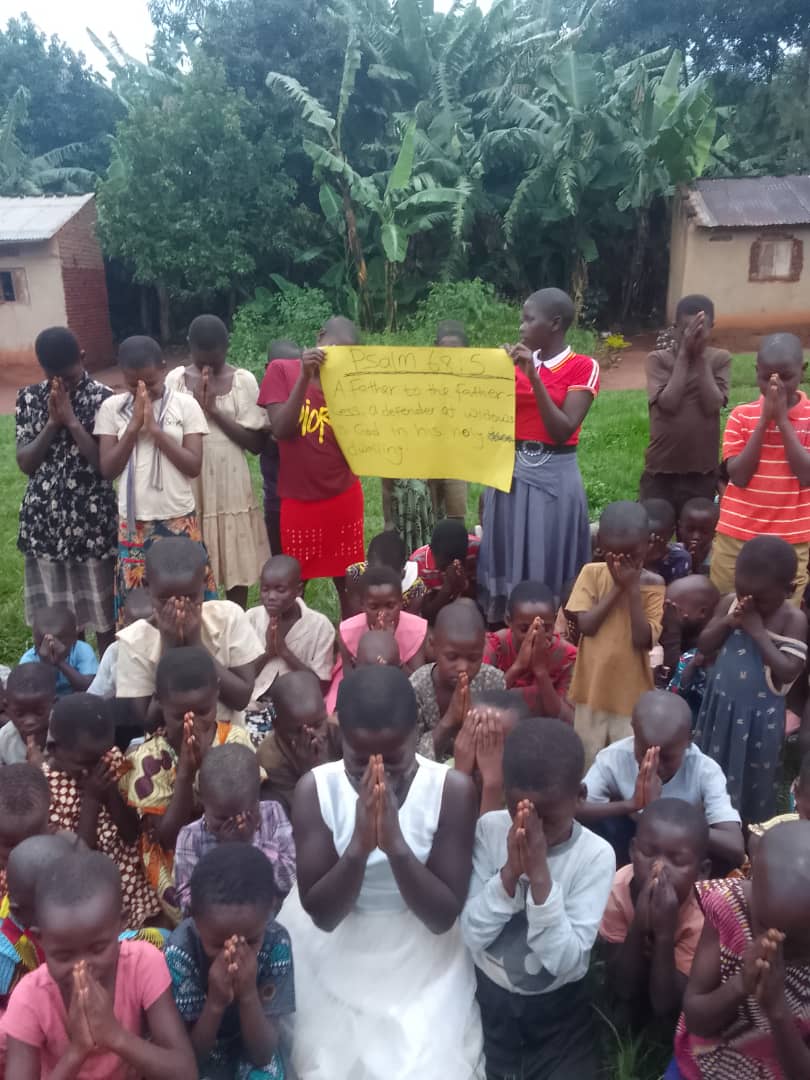 Psalm 68:5
A Father to the father-
less, a defender of widows
is God in his holy
dwelling